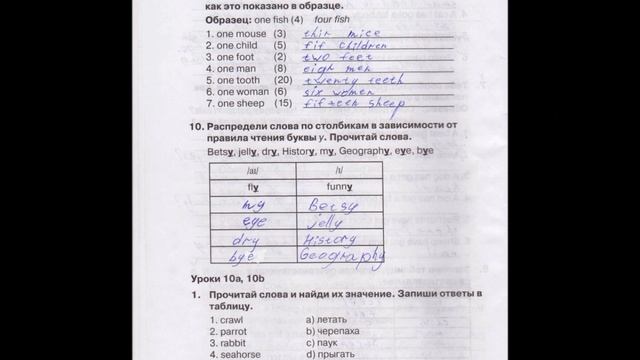 как это показано в образце.
Образец: one fish (4) four fish
1. one mouse (3) thir mice
2. one child (5) fif children
3. one foot (2) two feet
4. one man (8) eigh men
5. one tooth (20) twenty teeth
6. one woman (6) six women
7. one sheep (15) fifteen sheep
10. Распредели слова по столбикам в зависимости от
правила чтения буквы y. Прочитай слова.
Betsy, jelly, dry, History, my, Geography, eye, bye
/aɪ/ /ɪ/
fly funny
my Betsy
eye jelly
dry History
bye Geography
Уроки 10a, 10b
1. Прочитай слова и найди их значение. Запиши ответы в
таблицу.
1. crawl a) летать
2. parrot b) черепаха
3. rabbit c) паук
4. seahorse d) прыгать